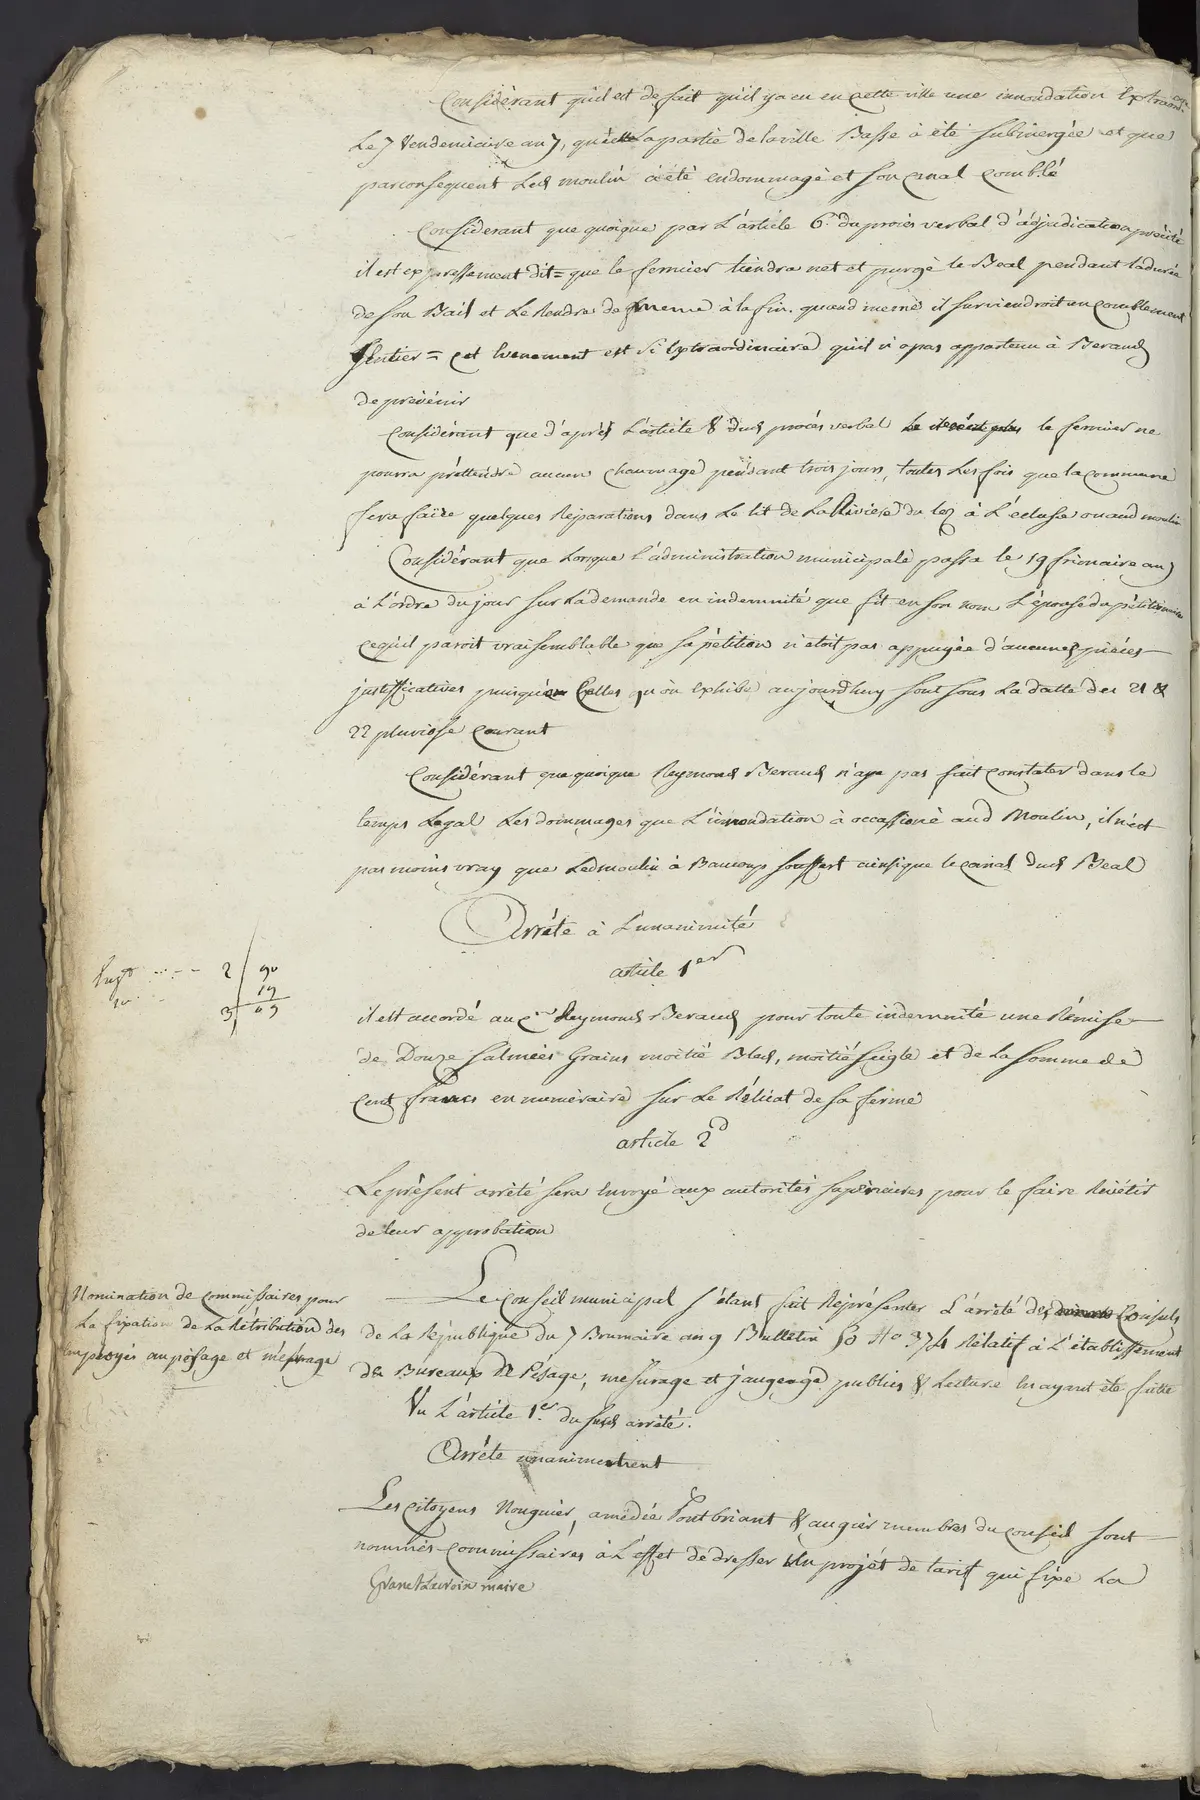 Considérant qu'il est de fait qu'il ya eu en cette ville une innondation Extraord.re
Le 7 Vendemiaire an 7, que la partie de la ville Basse à été submergée et que
par consequent Led moulin à été endommagé et son canal comblé
Considerant que quoique par L'article 6.e du procés verbal d'adjudication précité
il est expressement dit = que le fermier tiendra net et purgé le Béal pendant la durée
de son Bail et Le Rendra de meme à la fin. quand meme il surviendroit un comblement
Entier = cet Evenement est si Extraordinaire qu'il n'a pas appartenu à Beraud
de prévénir
Considérant que d'après L'article 8 dud procés verbal le fermier ne
pourra préttendre aucun chaumage pendant trois jours, toutes Les fois que la commune
fera faire quelques Réparations dans Le lit de La Riviere du lez à L'écluse ou aud moulin
Considérant que Lorsque l'administration municipale passa le 19 frimaire an 7
à L'ordre du jour sur La demande en indemnité que fit en son nom L'épouse du pétitionnaire
ce qu'il paroit vraisemblable que sa pétition n'étoit pas appuyée d'aucunes piéces
justifficatives puisque Celles qu'on Exhibe aujourd'huy sont sous La datte des 21 &
22 pluviose courant
Considérant que quoique Reymond Beraud n'aye pas fait constater dans le
temps Légal Les dommages que L'innondation à occassioné aud Moulin, il n'est
pas moins vray que Led moulin à Baucoup souffert ainsi que le canal dud Béal
Arrête à L'unanimité
article 1er
2 90
19
3 09
il est accordé au c.en Reymond Beraud pour toute indemnité une Rémise
de Douze salmées Grains moitié Bled, moitié seigle et de La somme de
Cent francs en numéraire sur Le Rélicat de sa ferme
article 2d
Le présent arrêté sera Envoyé aux autorités supérieures pour le faire Révétir
de leur approbation
Nomination de commissaires pour
La fixation de La Rétribution des
employés au pésage et mésurage
Le Conseil municipal s'étant fait Réprésenter L'arrêté des Consuls
de La République du 7 Brumaire an 9 Bulletin 50 N.o 374 Rélatif à L'établissement
de Bureaux de Pésage, mesurage et jaugeage publics & Lecture En ayant été faitte
Vu L'article 1.er du susd arrêté.
Arrête unanimement
Les citoyens Nouguier, amédée Pontbriant & augier membres du conseil sont
nommés commissaires à L'effet de dresser Un projét de tarif qui fixe La
maire